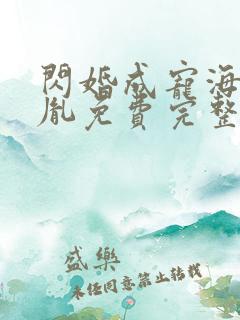 閃婚成寵海
胤免費完整
盛樂
未經同意禁止轉載